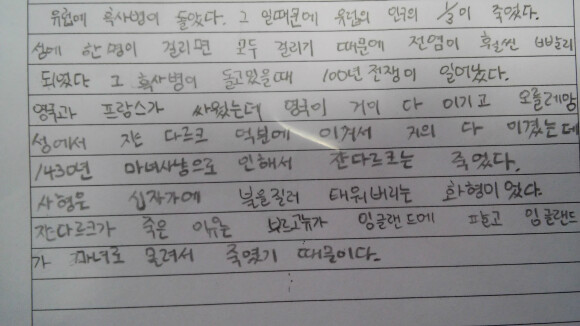 유럽에 흑사병이 돌았다. 그 일때문에 유럽의 인구의 1/3이 죽었다.
섬에 한명이 걸리면 모두 걸리기 때문에 전염이 훨씬 빠빨리
되였다 그 흑사병이 돌고있을때 100년 전쟁이 일어났다.
영국과 프랑스가 싸웠는데 영국이 거이 다 이기고 오를레앙
성에서 쟌 다르크 덕분에 이겨서 거의 다 이겼는데
1430년 마녀사냥으로 인해서 쟌다르크는 죽었다.
사형은 십자가에 불을질러 태워버리는 화형이었다.
쟌다르크가 죽은 이유는 브르고뉴가 잉글랜드에 팔고 잉글랜드
가 마녀로 몰려서 죽였기 때문이다.